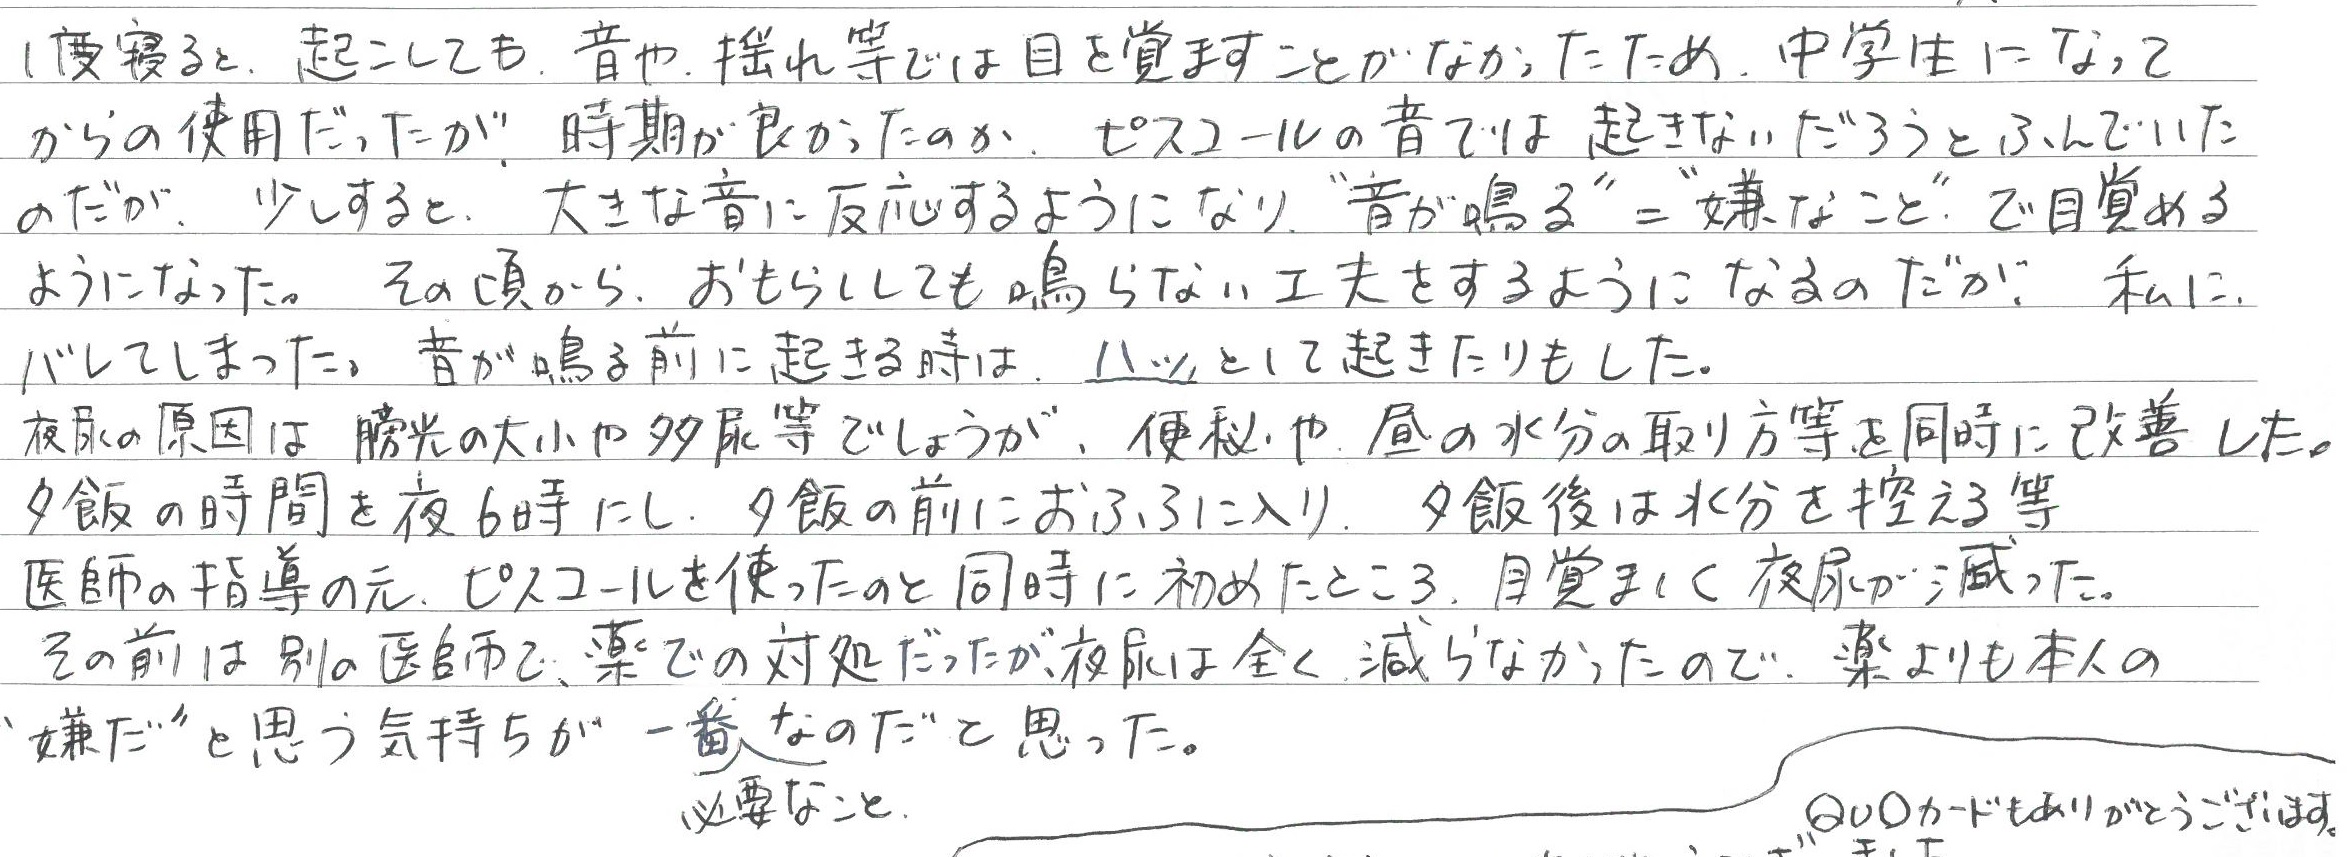 1度寝ると、起こしても、音や、揺れ等では目を覚ますことがなかったため、中学生になって
からの使用だったが、時期が良かったのか、ピスコールの音では起きないだろうとふんでいた
のだが、少しすると、大きな音に反応するようになり、"音が鳴る"="嫌なこと"で目覚める
ようになった。その頃から、おもらししても鳴らない工夫をするようになるのだが、私に、
バレてしまった。音が鳴る前に起きる時は、ハッとして起きたりもした。
夜尿の原因は膀光の大小や多尿等でしょうが、便秘や、昼の水分の取り方等を同時に改善した。
夕飯の時間を夜6時にし、夕飯の前におふろに入り、夕飯後は水分を控える等
医師の指導の元、ピスコールを使ったのと同時に初めたところ、目覚ましく夜尿が減った。
その前は別の医師で、薬での対処だったが、夜尿は全く減らなかったので、薬よりも本人の
"嫌だ"と思う気持ちが一番なのだと思った。
必要なこと
QUOカードもありがとうございます。